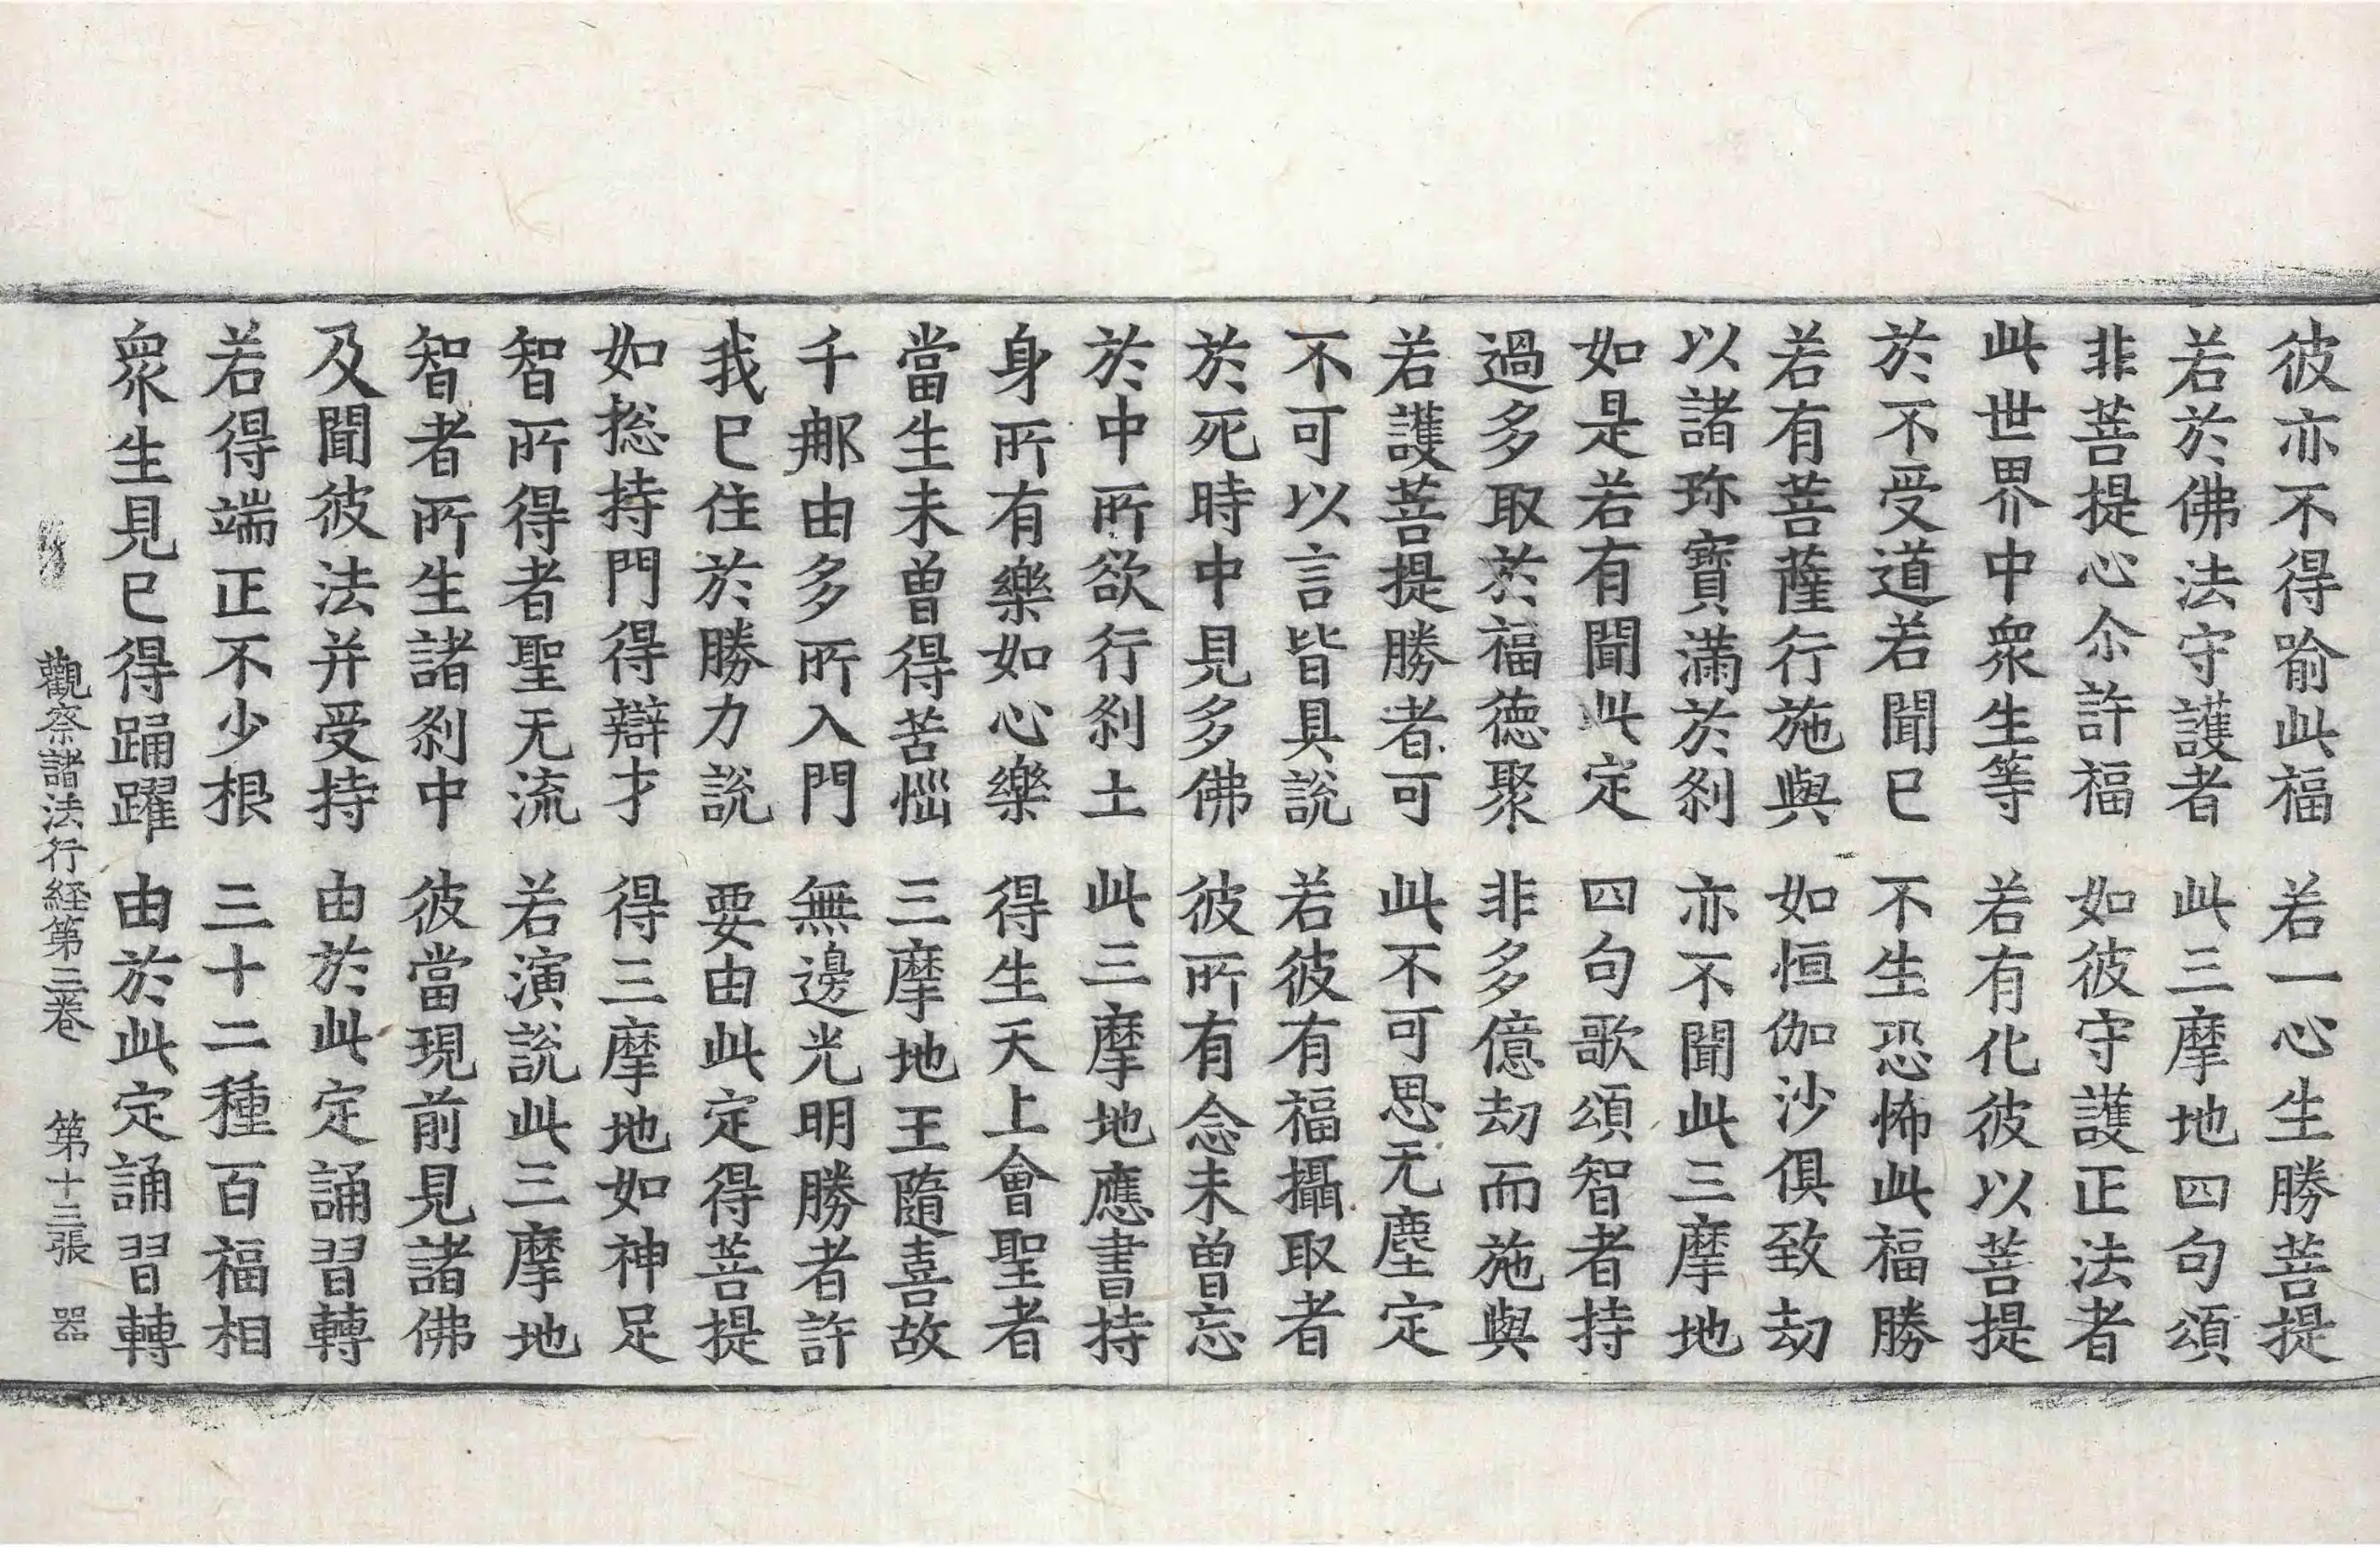 彼亦不得喻此福　若一心生勝菩提
若於佛法守護者　此三摩地四句頌
非菩提心尒許福　如彼守護正法者
此世界中衆生等　若有化彼以菩提
於不受道若聞已　不生恐怖此福勝
若有菩薩行施與　如恒伽沙俱致劫
以諸珎寶滿於刹　亦不聞此三摩地
如是若有聞此定　四句歌頌智者持
過多取於福德聚　非多億劫而施與
若護菩提勝者可　此不可思无塵定
不可以言皆具說　若彼有福攝取者
於死時中見多佛　彼所有念未曾忘
於中所欲行刹土　此三摩地應書持
身所有樂如心樂　得生天上會聖者
當生未曾得苦惱　三摩地王隨喜故
千那由多所入門　無邊光明勝者許
我已住於勝力說　要由此定得菩提
如揔持門得辯才　得三摩地如神足
智所得者聖无流　若演說此三摩地
智者所生諸刹中　彼當現前見諸佛
及聞彼法并受持　由於此定誦習轉
若得端正不少根　三十二種百福相
衆生見已得踊躍　由於此定誦習轉
觀察諸法行経第三卷　第十三張　器